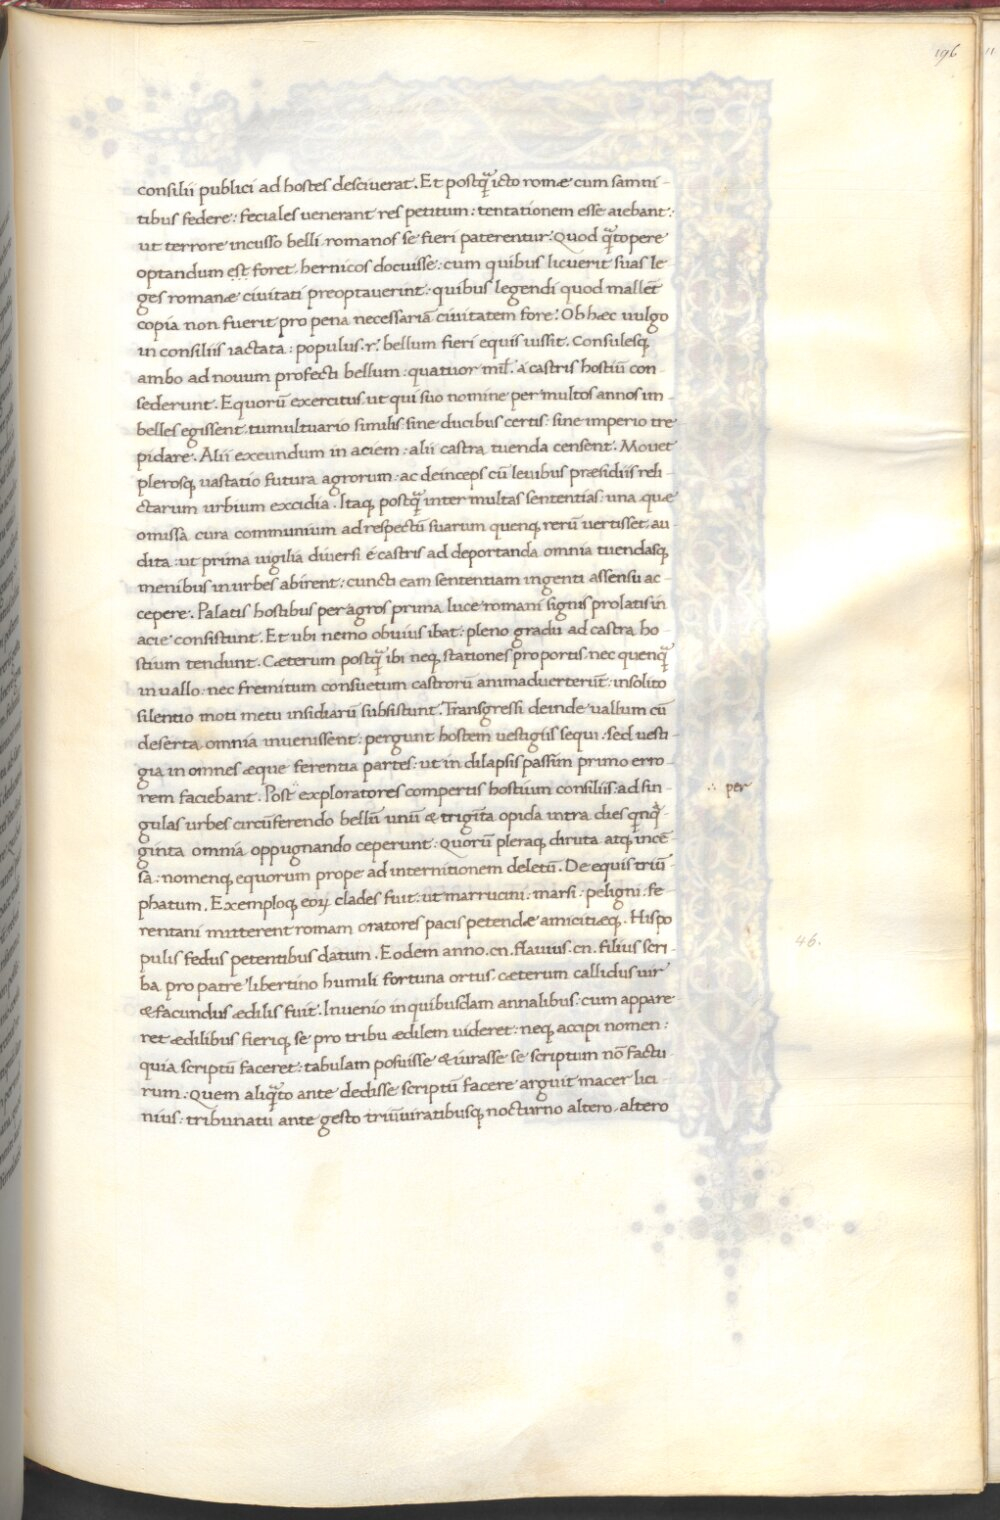 196
consilii publici ad hostes desciuerat. Et postq̃ icto romæ cum samni-
tibus federe: feciales uenerant res petitum: tentationem esse aiebant:
ut terrore incusso belli romanos se fieri paterentur. Quod q̃topere
optandum est foret. hernicos docuisse: cum quibus licuerit suas le
ges romanæ ciuitati preoptauerint: quibus legendi quod mallēt
copia non fuerit pro pena necessariā ciuitatem fore. Ob hæc uulgo
in consiliis iactata: populus .r. bellum fieri equis iussit. Consulesq;
ambo ad nouum profecti bellum: quatuor mil̃. a castris hostiū con-
sederunt. Equorū exercitus ut qui suo nomine per multos annos im-
belles egissent tumultuario similis: sine ducibus certis: sine imperio tre
pidare. Alii exeundum in aciem: alii castra tuenda censent. Mouet
plerosq; uastatio futura agrorum: ac deinceps cū leuibus præsidiis reli-
ctarum urbium excidia. Itaq; postq̃ inter multas sententias: una quæ
omissa cura communium ad respectū suarum quenq; rerū uertisset au-
dita: ut prima uigilia diuersi e castris ad deportanda omnia tuendasq;
menibus in urbes abirent: cuncti eam sententiam ingenti assensu ac-
cepere. Palatis hostibus per agros prima luce romani signis prolatis in
acie consistunt. Et ubi nemo obuius ibat: pleno gradu ad castra ho-
stium tendunt. Cæterum postq̃ ibi neq; stationes pro portis nec quenq̃
in uallo: nec fremitum consuetum castrorū animaduerterūt: insolito
silentio moti metu insidiarū subsistunt. Transgressi deinde uallum cū
deserta omnia inuenissent: pergunt hostem uestigiis sequi: sed uesti-
gia in omnes æque ferentia partes: ut in dilapsis passim primo erro-
rem faciebant. Post exploratores compertis hostium consiliis: ad sin-
∴ per
gulas urbes circūferendo bellū unū & trigīta opida intra dies qnq̃-
ginta omnia oppugnando ceperunt: Quorū pleraq; diruta atq; incē-
sa: nomenq; equorum prope ad internitionem deletū. De equis triū-
phatum. Exemploq; eoꝝ clades fuit: ut marrucini: marsi: peligni: fe-
rentani mitterent romam oratores pacis petendæ amicitiæq;. His po
46.
pulis fedus petentibus datum. Eodem anno .cn. flauius .cn. filius scri-
ba pro patre libertino humili fortuna ortus. cæterum callidus uir
& facundus ædilis fuit. Inuenio in quibusdam annalibus: cum appare
ret ædilibus fieriq; se pro tribu ædilem uideret: neq; accipi nomen:
quia scriptū faceret: tabulam posuisse & iurasse se scriptum nō factu-
rum. Quem aliq̃to ante dedisse scriptū facere arguit macer lici-
nius: tribunatu ante gesto triūuiratibusq; nocturno altero. altero